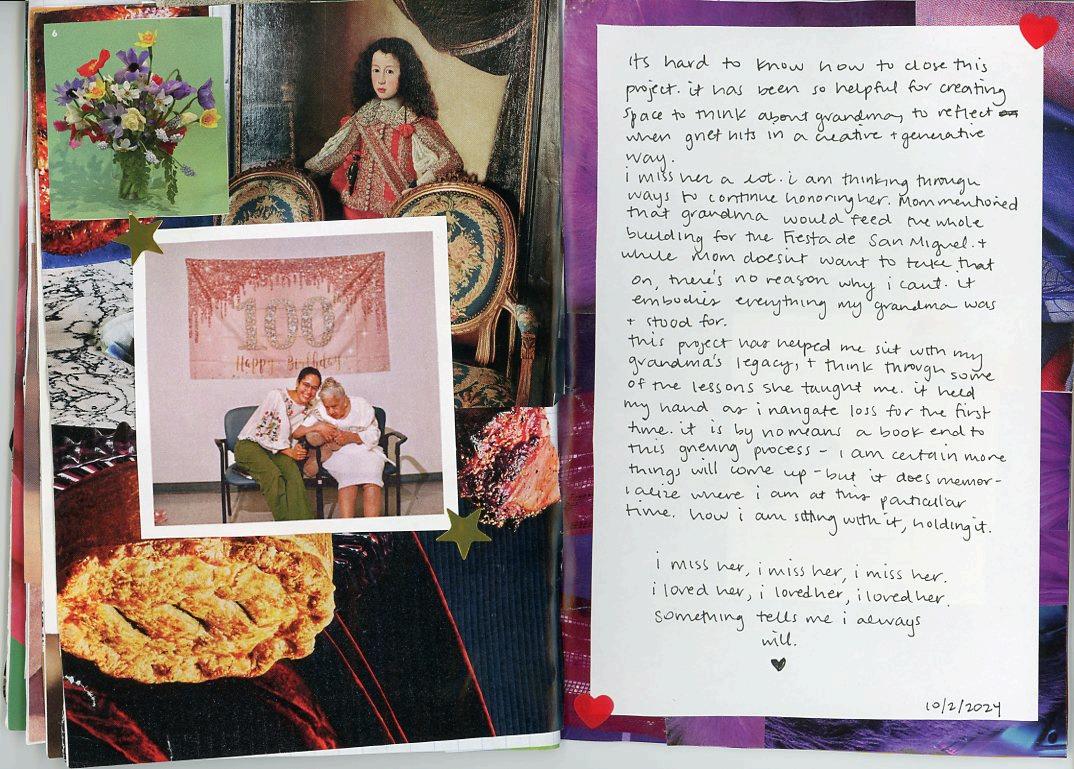 6
100
Happy Birthday
its hard to know how to close this
project. it has been so helpful for creating
space to think about grandma, to reflect
when grief hits in a creative + generative
way.
i miss her a lot. i am thinking through
ways to continue honoring her. Mom mentioned
that grandma would feed the whole
building for the Fiesta de San Miguel. +
while mom doesn't want to take that
on, there's no reason why i can't. it
embodies everything my grandma was
+ stood for.
this project has helped me sit with my
grandma's legacy, + think through some
of the lessons she taught me. it held
my hand as i navigate loss for the first
time. it is by no means a book end to
this grieving process - i am certain more
things will come up - but it does memor-
ialize where i am at this particular
time. how i am sitting with it, holding it.
i miss her, i miss her, i miss her.
i loved her, i loved her, i loved her.
something tells me i always
will.
10/2/2024